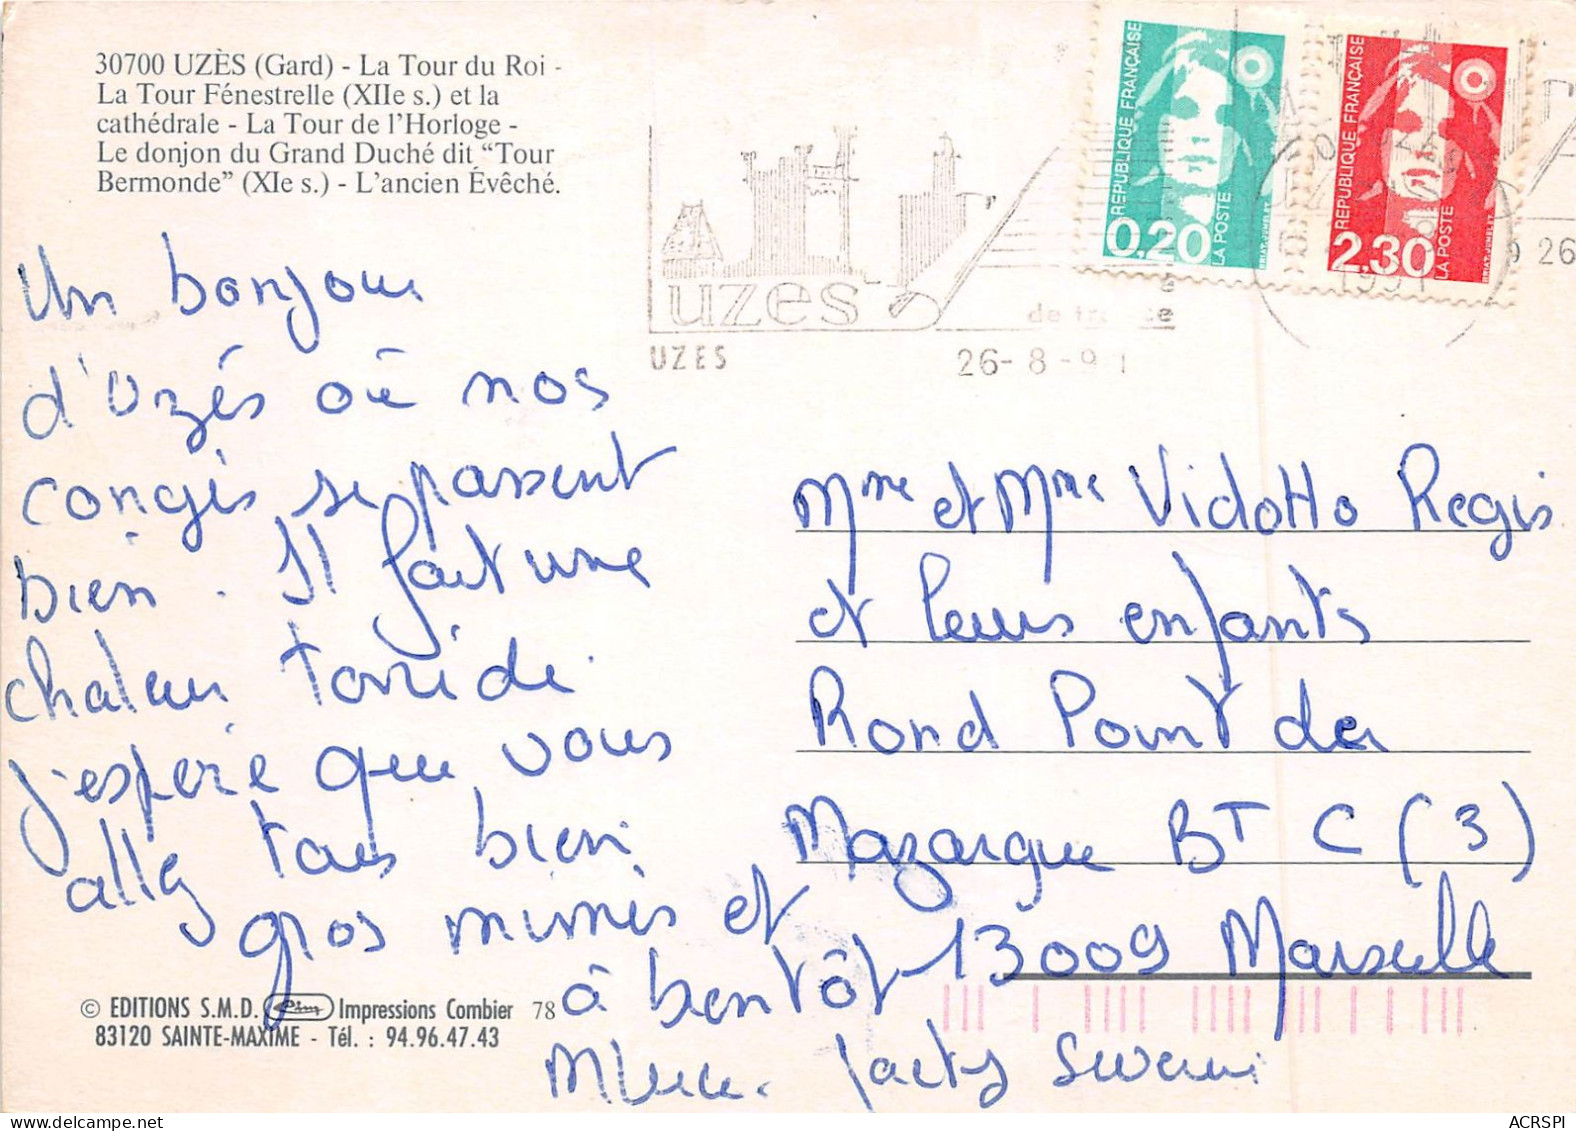 30700 UZÈS (Gard) - La Tour du Roi -
La Tour Fénestrelle (XIIe s.) et la
cathédrale - La Tour de l'Horloge -
Le donjon du Grand Duché dit "Tour
Bermonde" (XIe s.) - L'ancien Évêché.
RÉPUBLIQUE FRANÇAISE
0,20
LA POSTE
RÉPUBLIQUE FRANÇAISE
2,30
LA POSTE
uzes
UZES
26-8-91
26
1991
Un bonjour
d'Uzés où nos
congés se passent
bien. Il fait une
chaleur torride
j'espère que vous
allez tous bien
gros mimis et
à bientôt
Jacky
Mme et Mme Vidotto Regis
et leurs enfants
Rond Point de
Mazargue BT C (3)
13009 Marseille
© EDITIONS S.M.D. Impressions Combier 78
83120 SAINTE-MAXIME - Tél. : 94.96.47.43
ACRSPI